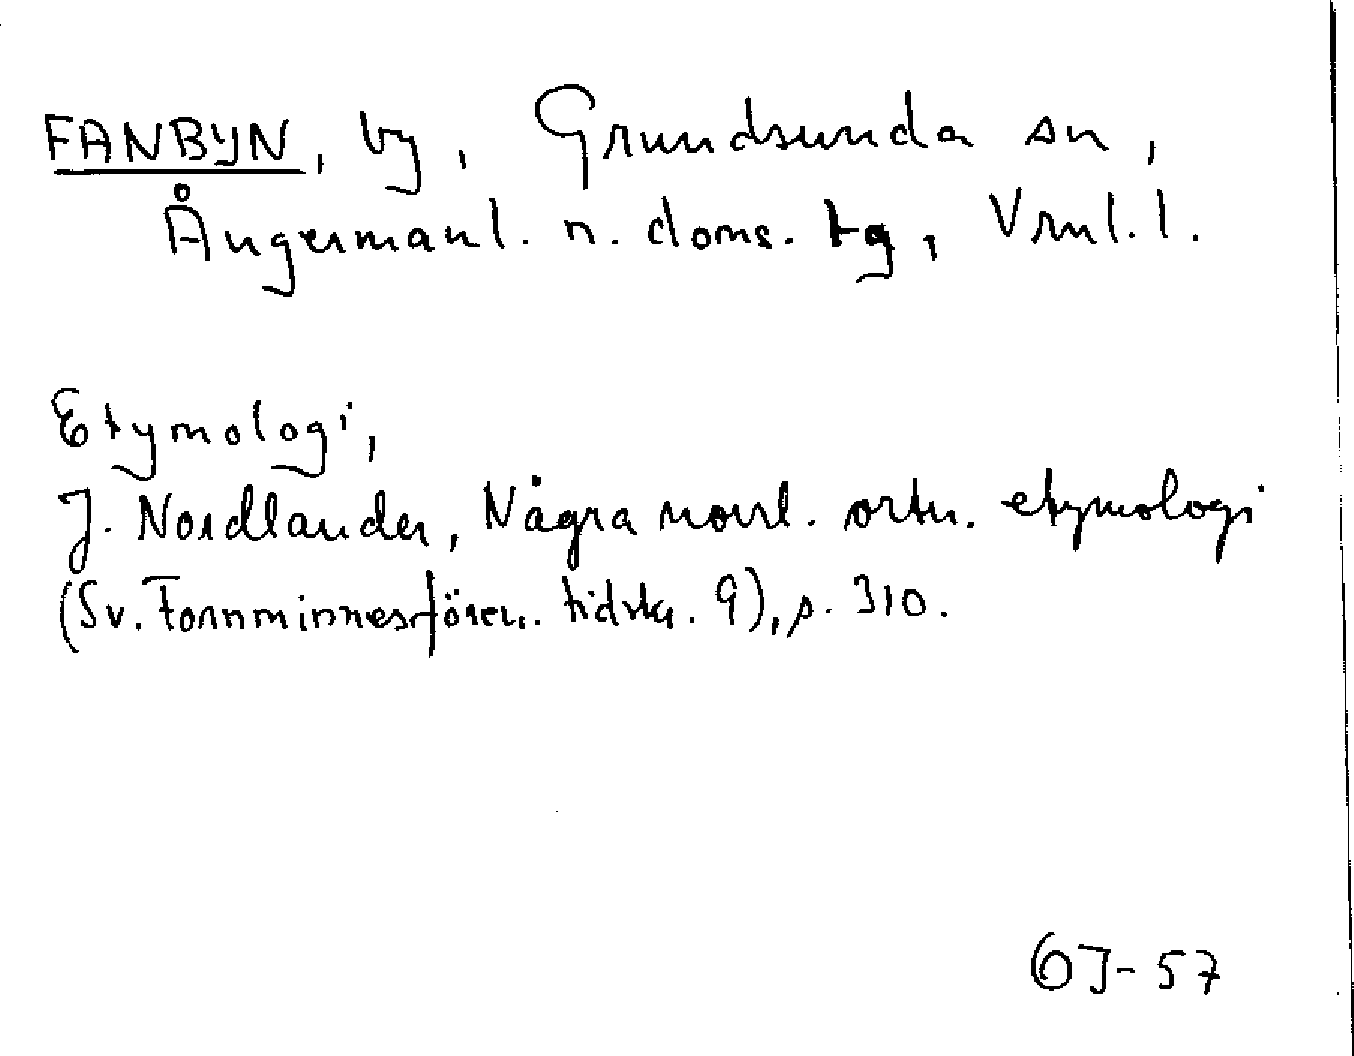 FANBYN, by, Grundsunda sn,
Ångermanl. n. doms. tg, Vrnl. l.
Etymologi,
J. Nordlander, Några norrl. ortn. etymologi
(Sv. Fornminnesfören. tidskr. 9), s. 310.
GJ-57